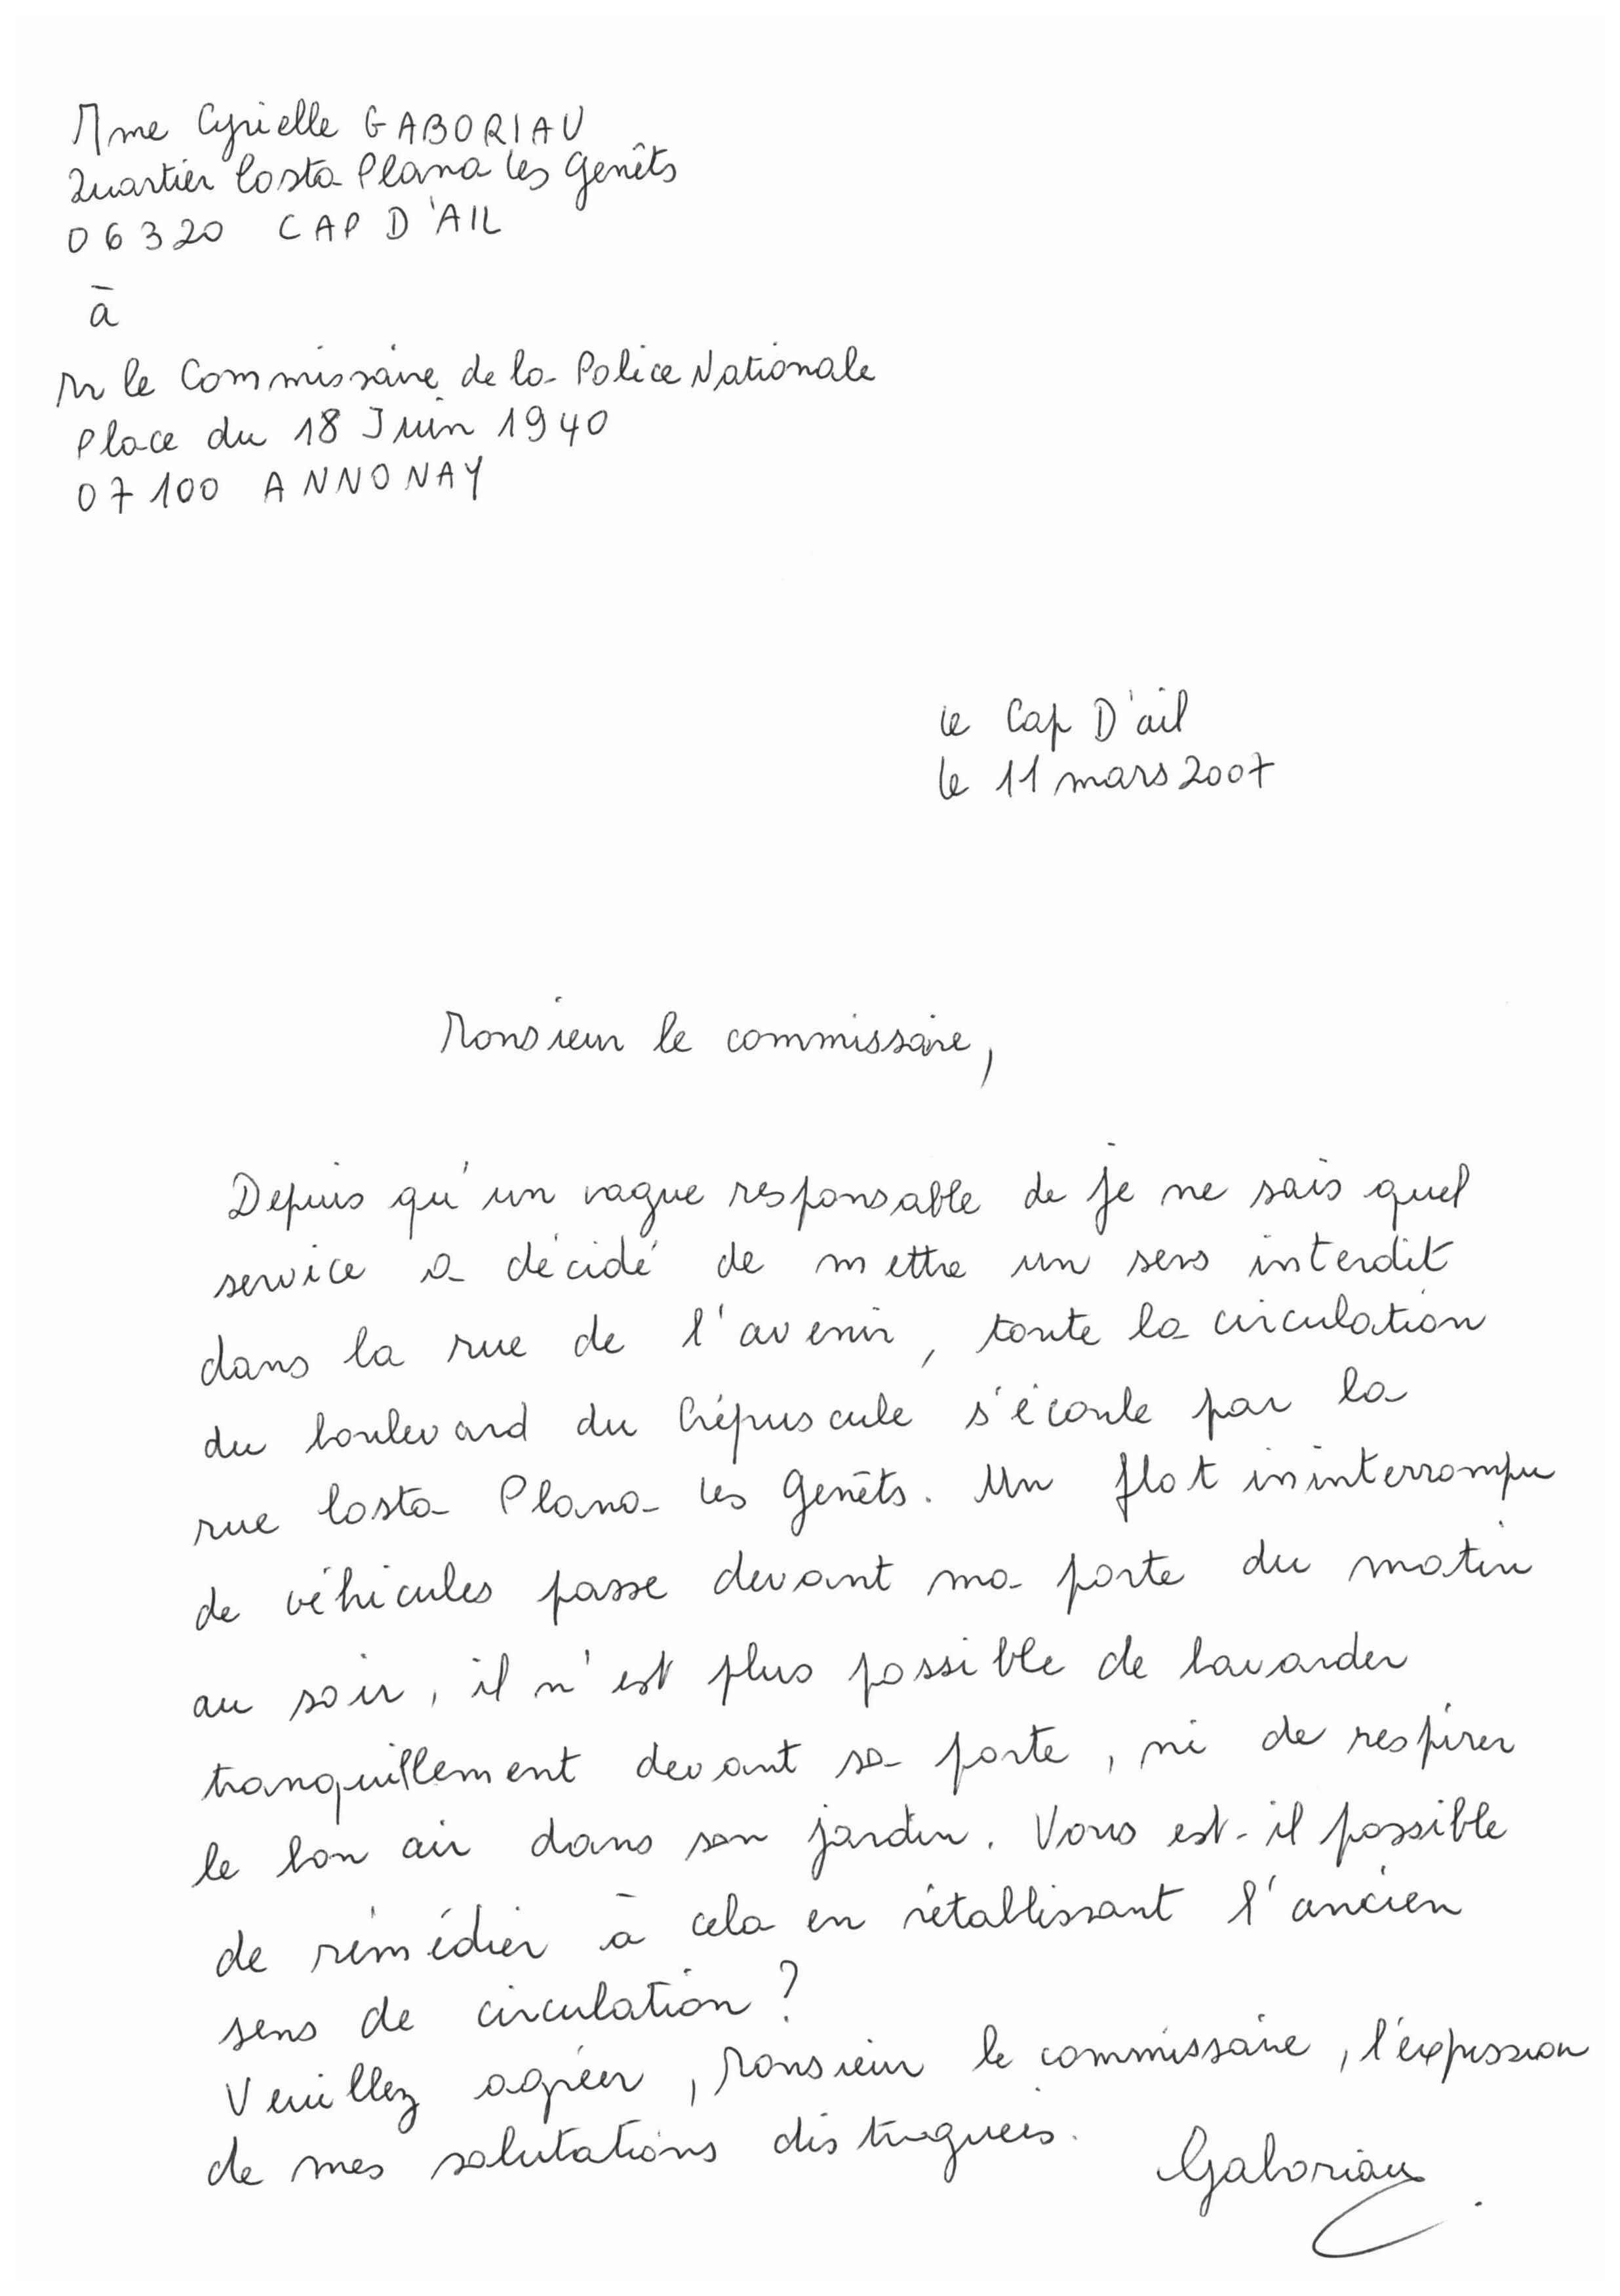 Mme Cyrielle GABORIAU
Quartier Costa Plana les Genêts
06320 CAP D'AIL
à
Mr le Commissaire de la Police Nationale
Place du 18 Juin 1940
07100 ANNONAY
le Cap D'ail
le 11 mars 2007
Monsieur le commissaire,
Depuis qu'un vague responsable de je ne sais quel
service a décidé de mettre un sens interdit
dans la rue de l'avenir, toute la circulation
du boulevard du Crépuscule s'écoule par la
rue Costa Plana les Genêts. Un flot ininterrompu
de véhicules passe devant ma porte du matin
au soir, il n'est plus possible de bavarder
tranquillement devant sa porte, ni de respirer
le bon air dans son jardin. Vous est-il possible
de rémédier à cela en rétablissant l'ancien
sens de circulation ?
Veuillez agréer, Monsieur le commissaire, l'expression
de mes salutations distinguées.
Gaboriau